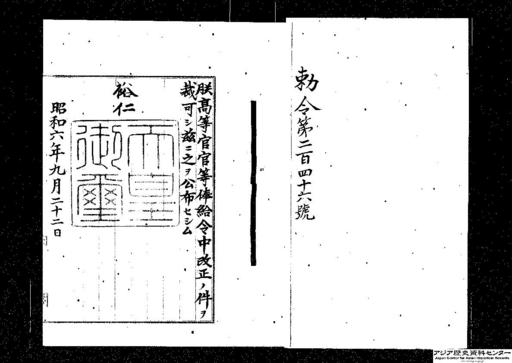 勅令第二百四十六號
朕高等官官等俸給令中改正ノ件ヲ
裁可シ茲ニ之ヲ公布セシム
裕仁
天皇
御璽
昭和六年九月二十二日
アジア歴史資料センター
Japan Center for Asian Historical Records